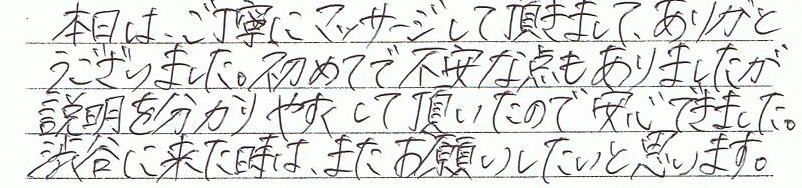 本日は、ご丁寧にマッサージして頂きまして、ありがと
うございました。初めてで不安な点もありましたが
説明を分かりやすくして頂いたので安心できました。
渋谷に来た時は、またお願いしたいと思います。